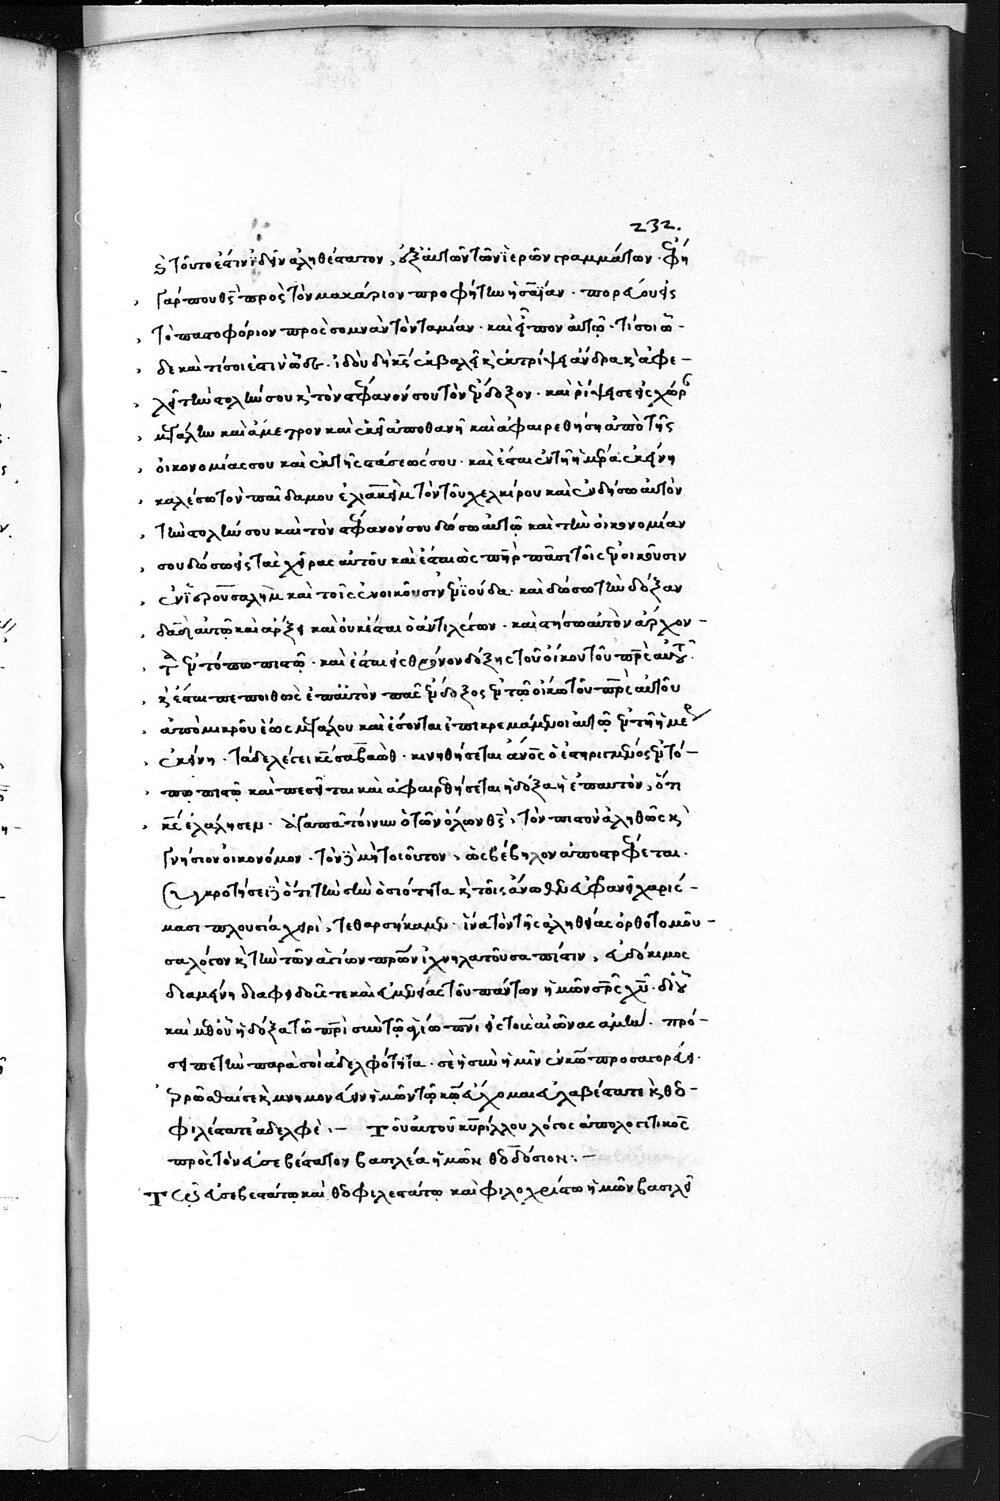 232.
ὅτι τοῦτο ἐστὶν ἰδεῖν ἀληθέστατον, ἐξ αὐτῶν τῶν ἱερῶν γραμμάτων. φη
γάρ που θς πρὸς τὸν μακάριον προφήτην ἡσαΐαν. πορεύου εἰς
τὸ παστοφόριον πρὸς σομνὰν τὸν ταμίαν. καὶ εἶπον αὐτῷ. τί σοι ὧ-
δε καὶ τί σοι ἐστὶν ὧδε. ἰδοὺ δὴ κς ἐκβαλεῖ κ ἐκτρίψει ἄνδρα κ ἀφε-
λεῖ τὴν στολήν σου κ τὸν στέφανόν σου τὸν ἔνδοξον. καὶ ῥίψει σε εἰς χώρ
μεγάλην καὶ ἀμετρον καὶ ἐκεῖ ἀποθανῇ καὶ ἀφαιρεθήσῃ ἀπὸ τῆς
οἰκονομίας σου καὶ ἐκ τῆς στάσεώς σου. καὶ ἔσται ἐν τῇ ἡμέρα ἐκείνῃ
καλέσω τὸν παῖδα μου ἐλιακεὶμ τὸν τοῦ χελκίρου καὶ ἐνδύσω αὐτὸν
τὴν στολήν σου καὶ τὸν στέφανόν σου δώσω αὐτῷ καὶ τὴν οἰκονομίαν
σου δώσω εἰς τὰς χεῖρας αὐτοῦ καὶ ἔσται ὡς πηρ πᾶσι τοῖς ἐνοικοῦσιν
ἐν ἱερουσαλὴμ καὶ τοῖς ἐνοικοῦσιν ἐν ἰούδα. καὶ δώσω τὴν δόξαν
δαδ αὐτῷ καὶ ἄρξει καὶ οὐκ ἔσται ὁ ἀντιλέγων. καὶ στήσω αὐτὸν ἄρχον-
τα ἐν τόπω πιστῷ. καὶ ἔσται εἰς θρόνον δόξης τοῦ οἴκου τοῦ πρς αὐτοῦ.
κ ἔσται πεποιθὼς ἐπ αὐτὸν πᾶς ἔνδοξος ἐν τῷ οἴκω τοῦ πρς αὐτοῦ
ἀπὸ μικροῦ ἕως μεγάλου καὶ ἔσονται ἐπικρεμάμενοι αὐτῷ ἐν τῇ ἡμέρ
ἐκείνῃ. τάδε λέγει κς σαβαὼθ. κινηθήσεται ἄνος ὁ ἐστηριγμένος ἐν τό-
πω πιστῷ καὶ πεσεῖται καὶ ἀφαιρεθήσεται ἡ δόξα ἡ ἐπ αὐτὸν, ὅτι
κς ἐλάλησεν. ἀγαπᾶ τοίνυν ὁ τῶν ὅλων θς, τὸν πιστὸν ἀληθῶς κ
γνήσιον οἰκονόμον. τὸν δὲ μὴ τοιοῦτον, ὡς βέβηλον ἀποστρέφεται.
συγκροτήσει δὲ ὅτι τὴν σὴν ὁσιότητα κ τοῖς ἄνωθεν εὐφανεῖ χαρίσ-
μασι πλουσία χειρὶ, τεθαρσήκαμεν. ἵνα τὸν τῆς ἀληθείας ὀρθοτομοῦ-
σα λόγον κ τὴν τῶν ἁγίων πρων ἰχνηλατοῦσα πίστιν, εὐδόκιμος
διαμείνῃ διὰ φειδοῦς τε καὶ εὐμενείας τοῦ πάντων ἡμῶν σρς χυ. δι οὗ
καὶ μεθ οὗ ἡ δόξα τῷ πρὶ σὺν τῷ ἁγίω πνι εἰς τοὺς αἰῶνας ἀμήν. πρό-
σειπε τὴν παρὰ σοὶ ἀδελφότητα. σὲ ἡ σὺν ἡμῖν ἐν κω προσαγορεύει.
ἐρρῶσθαί σε κ μνημονεύειν ἡμῶν τῷ κω εὔχομαι εὐλαβέστατε κ θεο-
φιλέστατε ἀδελφὲ :— Τοῦ αὐτοῦ κυρίλλου λόγος ἀπολογητικὸς
πρὸς τὸν εὐσεβέστατον βασιλέα ἡμῶν θεοδόσιον :—
Τῷ εὐσεβεστάτω καὶ θεοφιλεστάτω καὶ φιλοχρίστω ἡμῶν βασιλεῖ